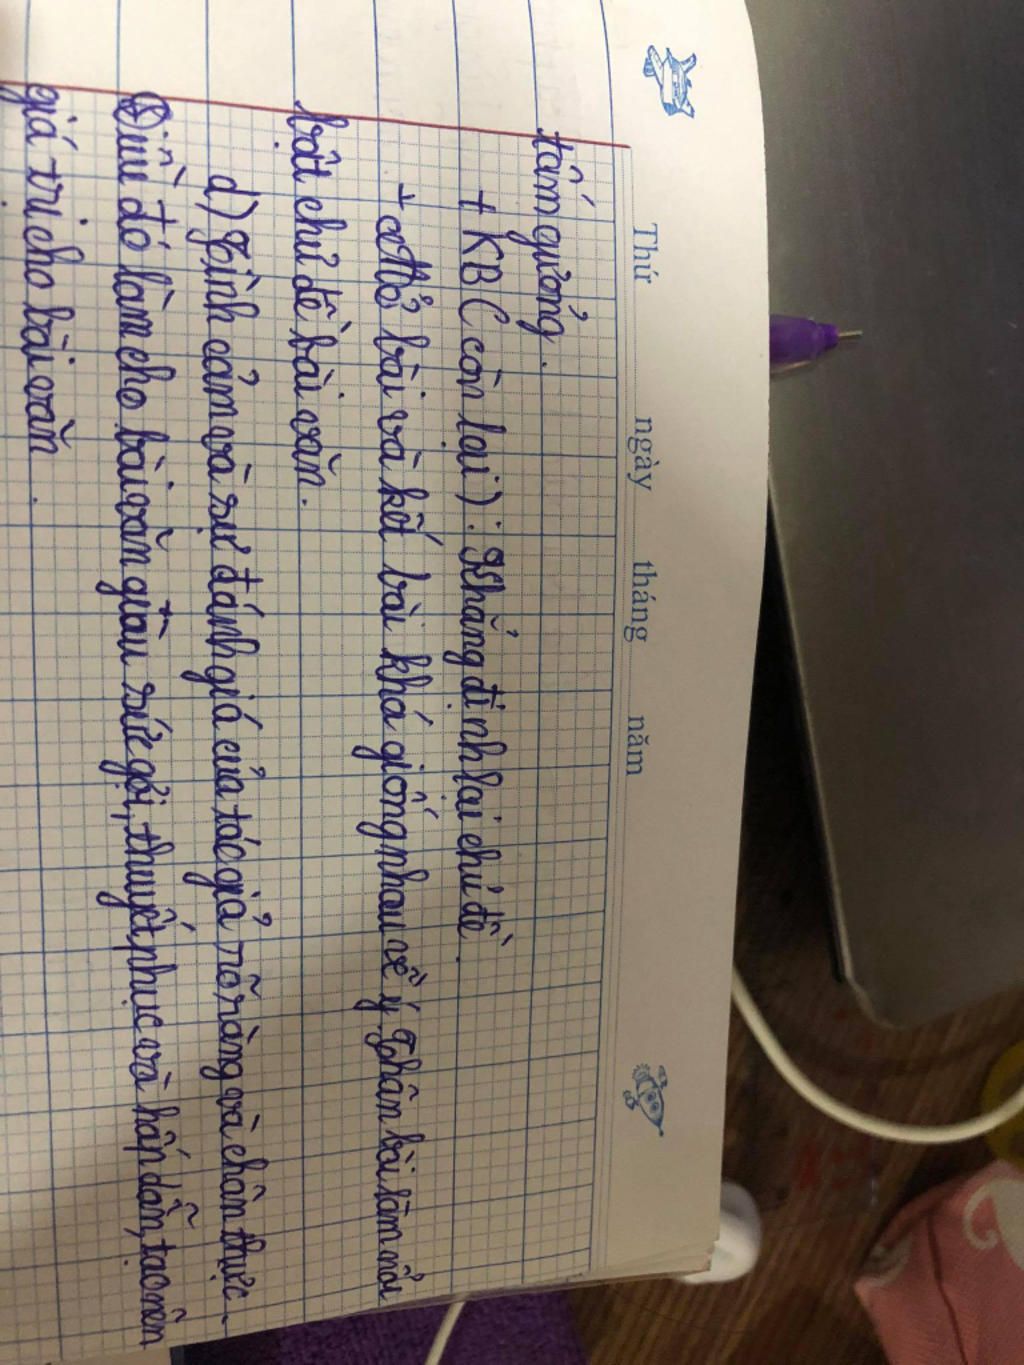 Thứ ngày tháng năm
tấm gương.
+ KB (còn lại): Khẳng định lại chủ đề.
+ Mở bài và kết bài khá giống nhau về ý. Thân bài làm nổi
bật chủ đề bài văn.
d) Tình cảm và sự đánh giá của tác giả rõ ràng và chân thực.
Điều đó làm cho bài văn giàu sức gợi, thuyết phục và hấp dẫn, tạo nên
giá trị cho bài văn.